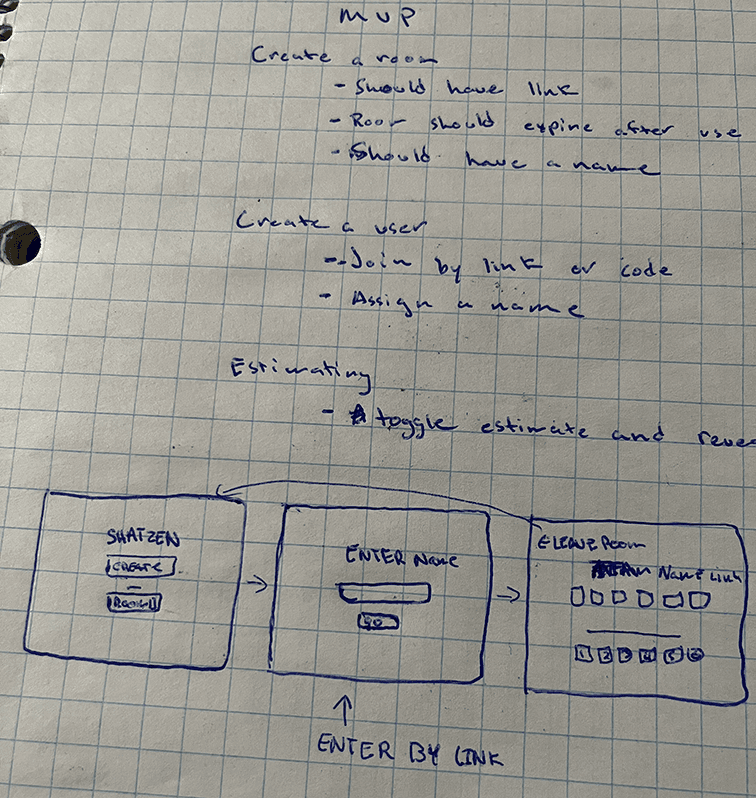 MVP
Create a room
- Should have link
- Room should expire after use
- Should have a name
Create a user
- Join by link or code
- Assign a name
Estimating
- toggle estimate and revea
SHATZEN
CREATE
ENTER Name
GO
LEAVE Room
Name Link
1 2 3 4 5 6
ENTER BY LINK